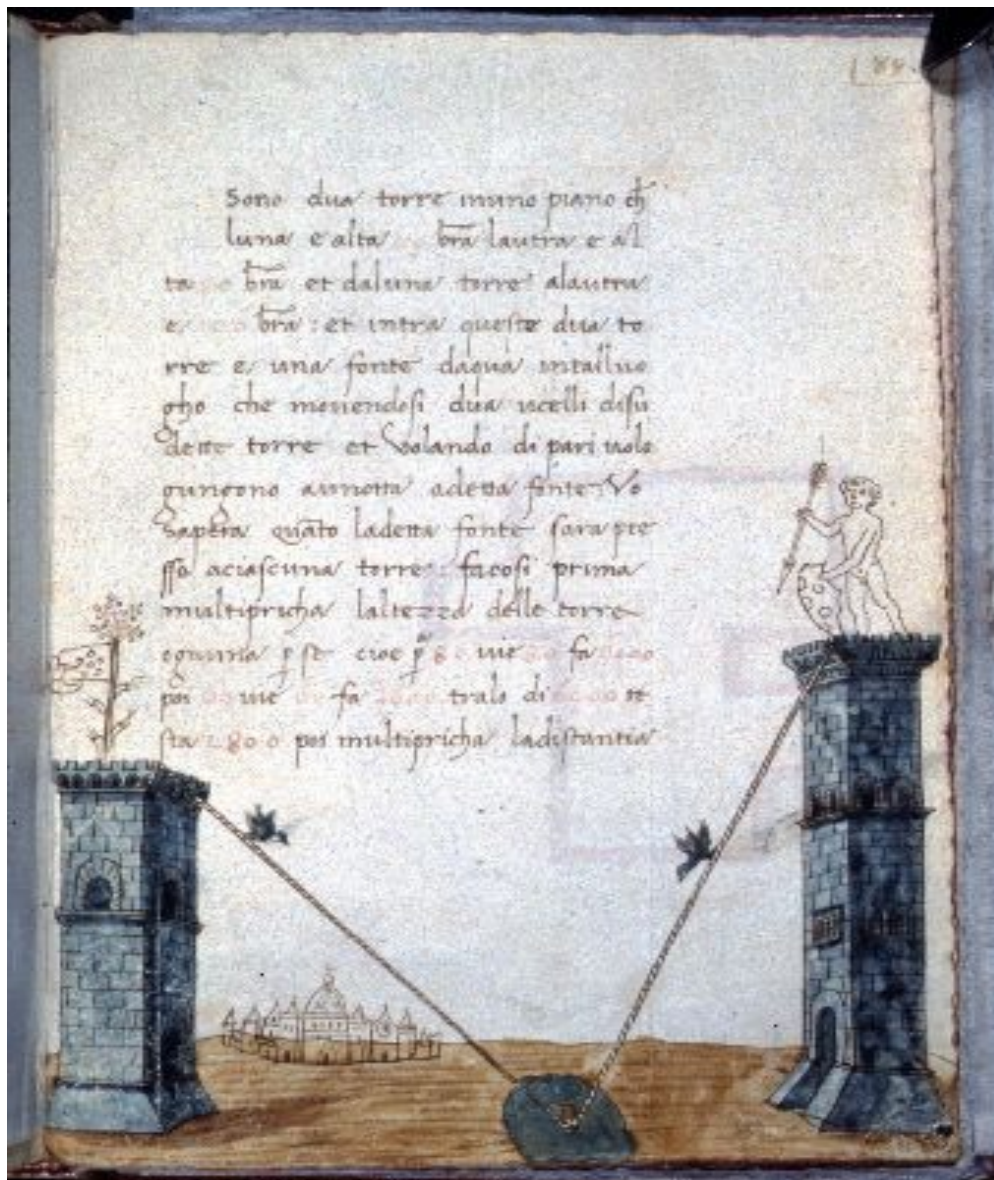 Sono dua torre inuno piano ch
luna e alta bra lautra e al
ta bra et daluna torre alautra
e bra : et intra queste dua to
rre e una fonte daqua intalluo
gho che movendosi dua ucelli disu
dette torre et volando di pari volo
gungono aunotta adetta fonte : Vo
saper quato ladetta fonte sara pre
sso aciascuna torre : fa cosi prima
multipricha laltezza delle torre
ognuna p se cioe p 80 uie fa
poi uie fa tralo di re
sta 2800 poi multipricha ladistantia